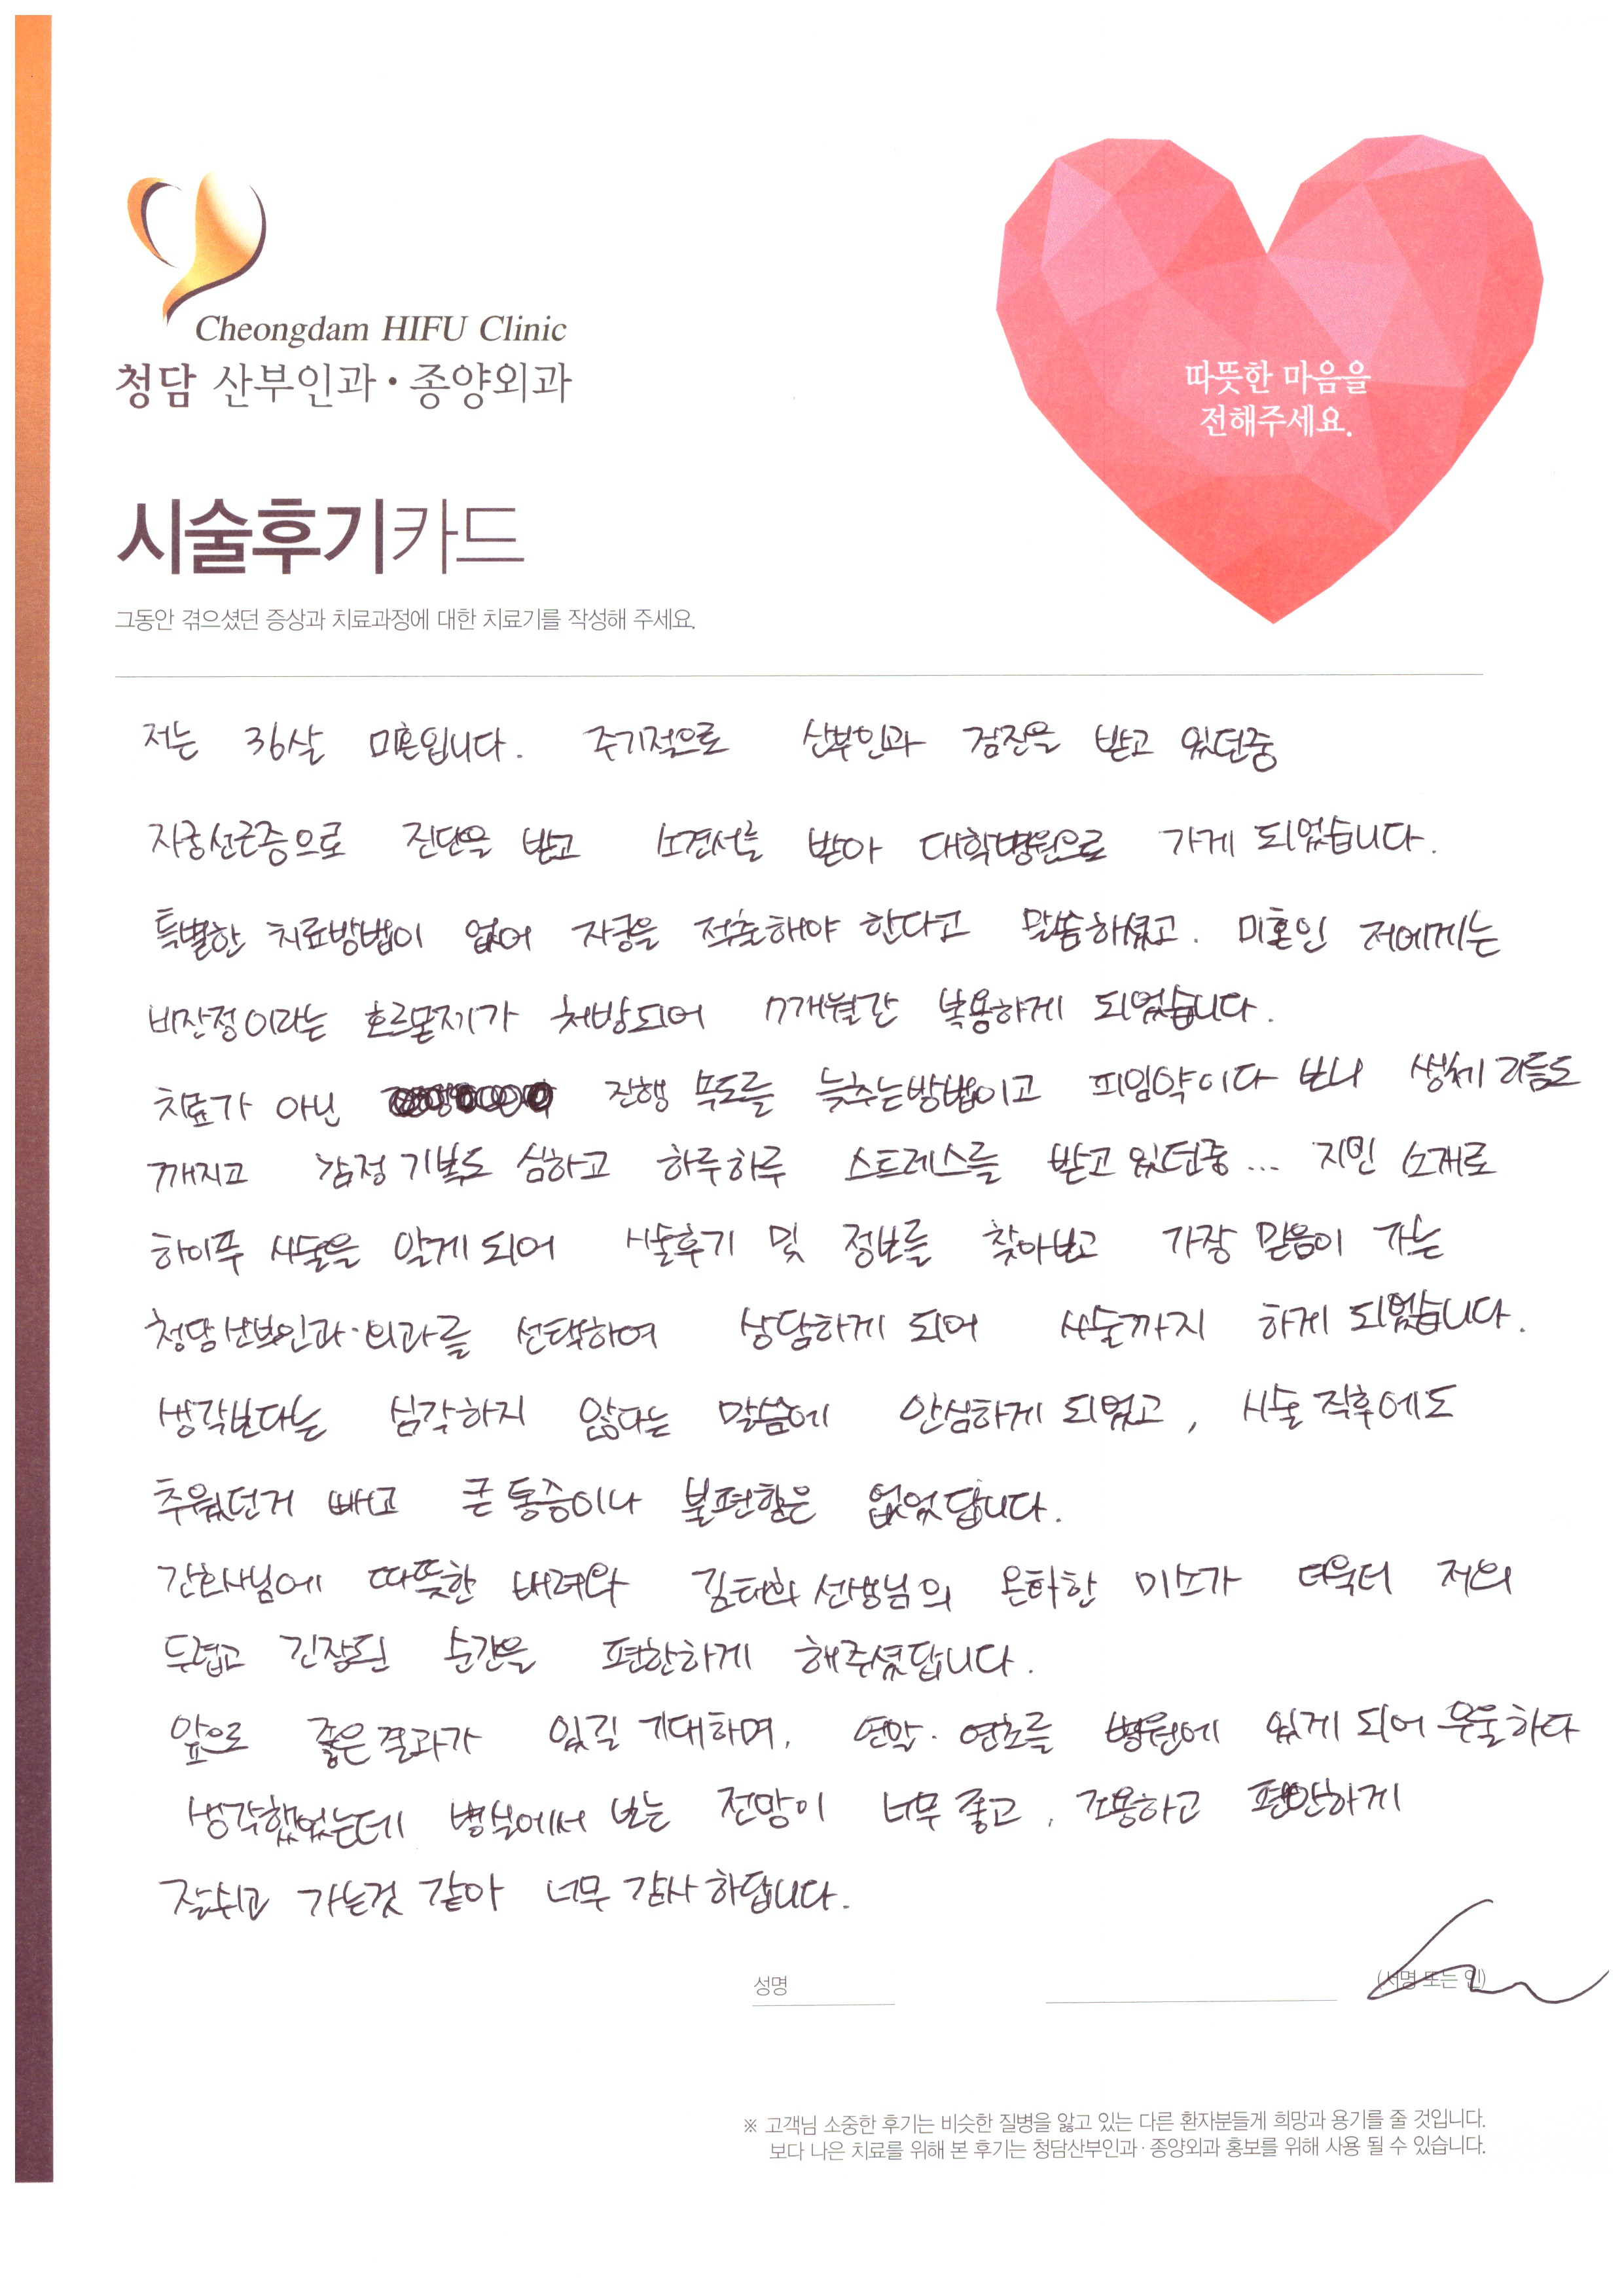 Cheongdam HIFU Clinic
청담 산부인과·종양외과
따뜻한 마음을
전해주세요.
시술후기카드
그동안 겪으셨던 증상과 치료과정에 대한 치료기를 작성해 주세요.
저는 36살 미혼입니다. 주기적으로 산부인과 검진을 받고 있던중
자궁선근증으로 진단을 받고 소견서를 받아 대학병원으로 가게 되었습니다.
특별한 치료방법이 없어 자궁을 적출해야 한다고 말씀하셨고. 미혼인 저에게는
비잔정이라는 호르몬제가 처방되어 7개월간 복용하게 되었습니다.
치료가 아닌 진행 속도를 늦추는방법이고 피임약이다 보니 생체 리듬도
깨지고 감정 기복도 심하고 하루하루 스트레스를 받고 있던중... 지인 소개로
하이푸 시술을 알게 되어 시술후기 및 정보를 찾아보고 가장 믿음이 가는
청담산부인과·외과를 선택하여 상담하게 되어 시술까지 하게 되었습니다.
생각보다는 심각하지 않다는 말씀에 안심하게 되었고, 시술 직후에도
추웠던거 빼고 큰 통증이나 불편함은 없었답니다.
간호사님에 따뜻한 배려와 김태희 선생님의 온하한 미소가 더욱더 저의
두렵고 긴장된 순간을 편한하게 해주셨답니다.
앞으로 좋은결과가 있길 기대하며, 연말·연초를 병원에 있게 되어 우울하다
생각했었는데 병실에서 보는 전망이 너무 좋고, 조용하고 편안하게
잘쉬고 가는것 같아 너무 감사하답니다.
성명 (서명 또는 인)
※ 고객님 소중한 후기는 비슷한 질병을 앓고 있는 다른 환자분들게 희망과 용기를 줄 것입니다.
보다 나은 치료를 위해 본 후기는 청담산부인과·종양외과 홍보를 위해 사용 될 수 있습니다.